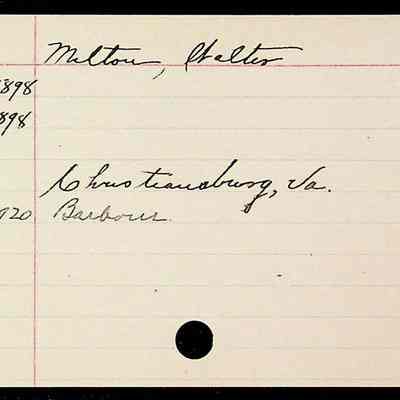 Melton, Walter
1898
898
Christiansburg, Va.
920 Barbour